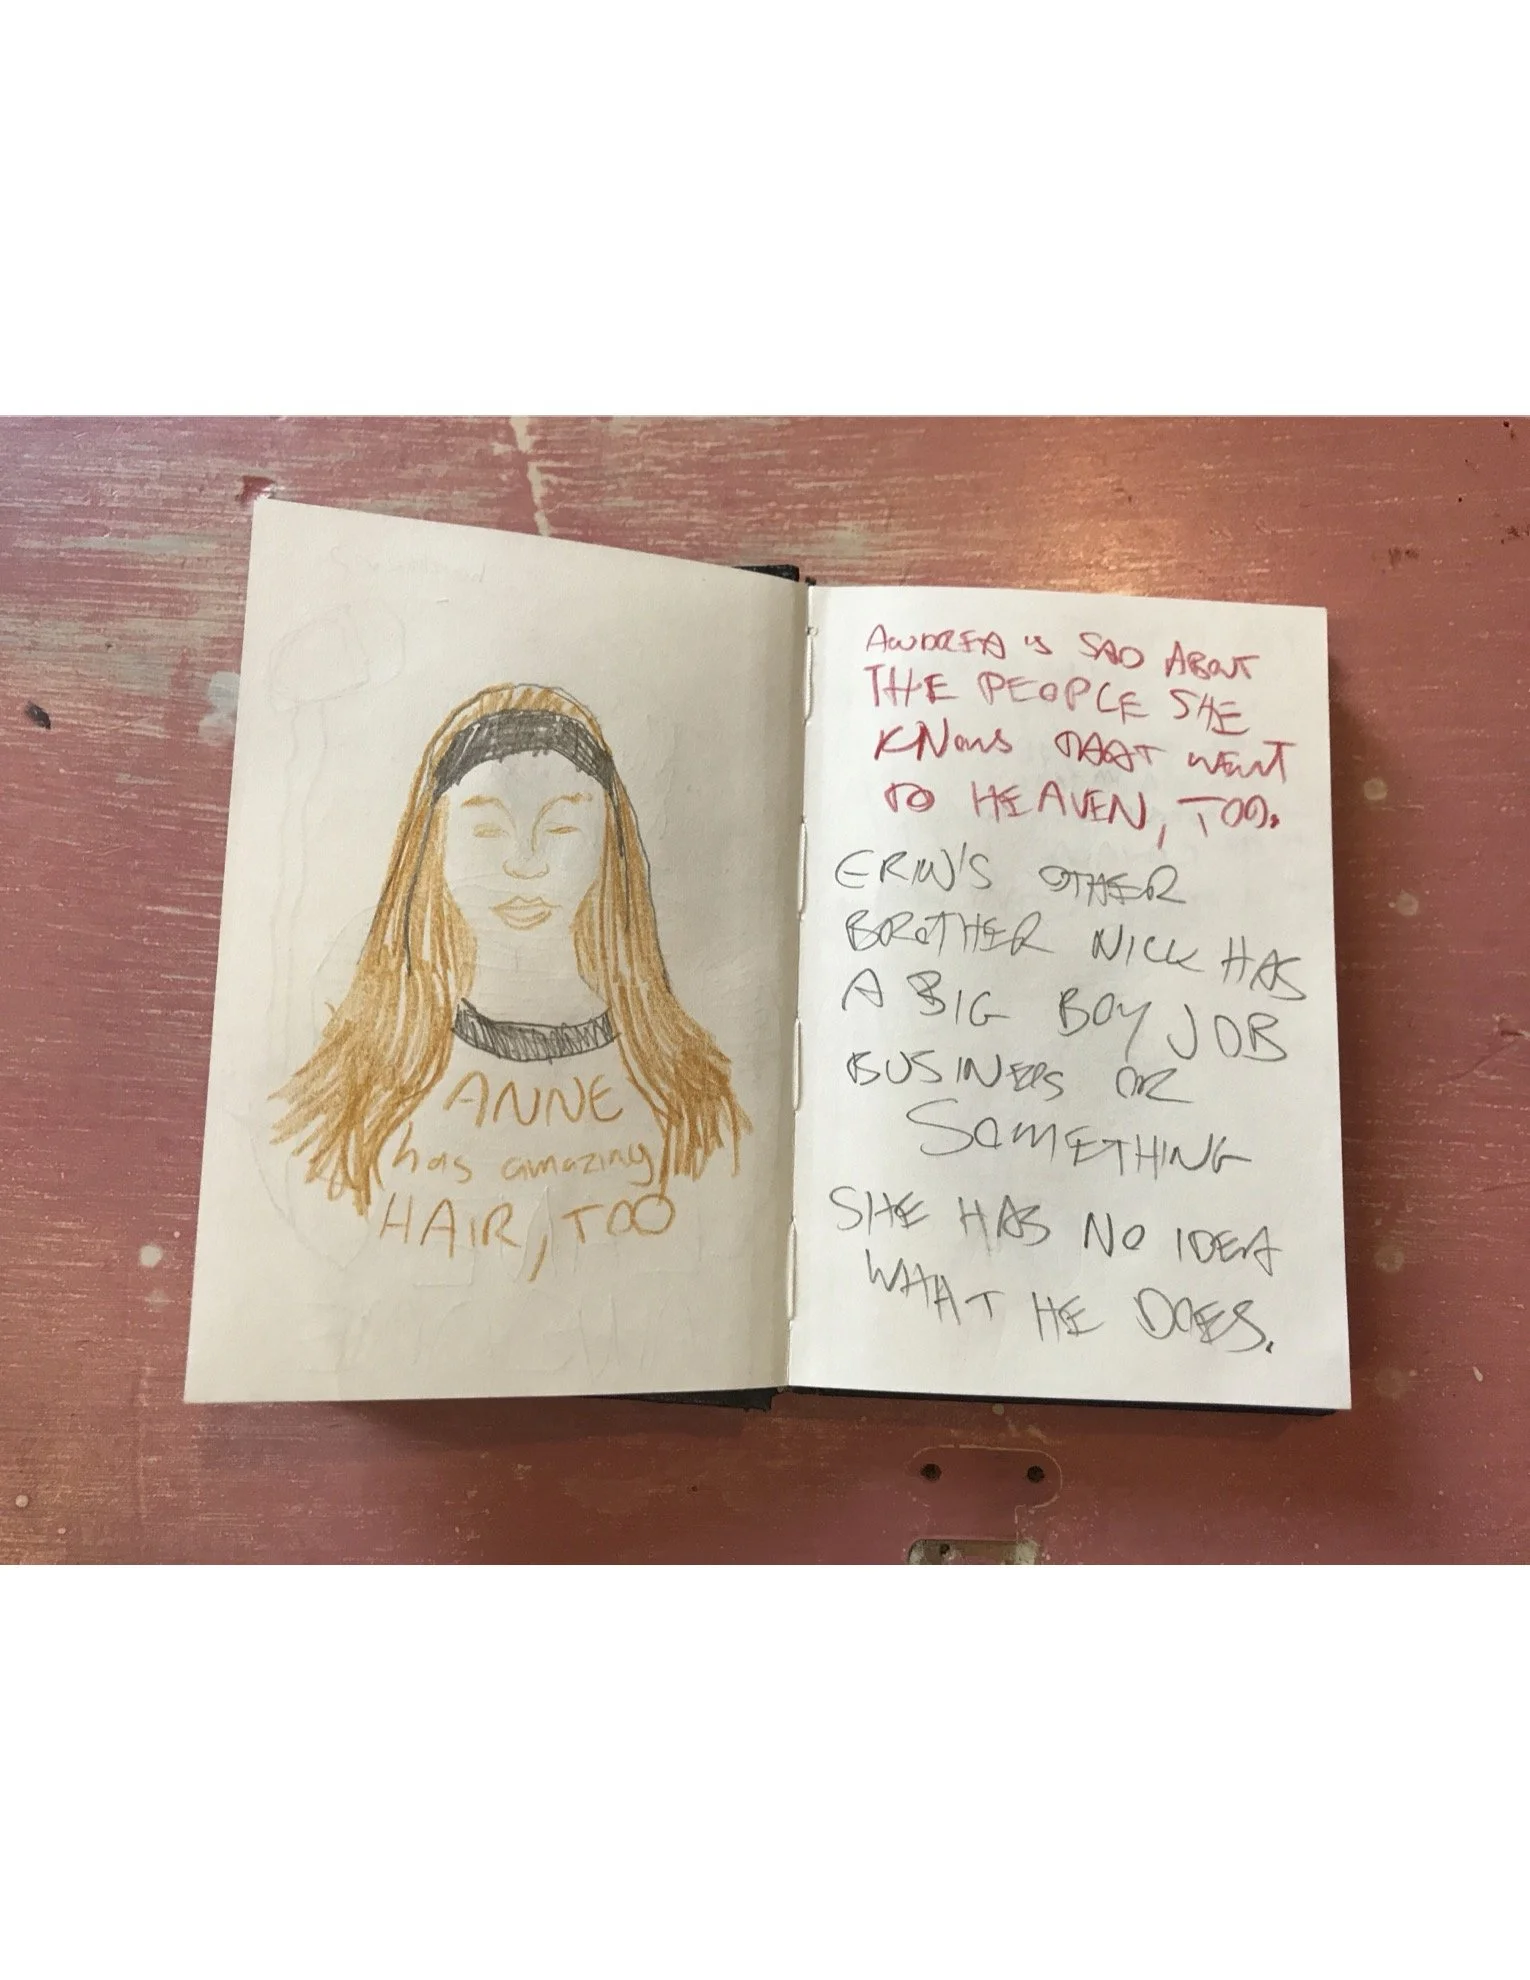 ANNE
has amazing
HAIR, TOO
ANDREA is SAD ABOUT
THE PEOPLE SHE
KNOWS THAT WENT
TO HEAVEN, TOO.
ERIN'S OTHER
BROTHER NICK HAS
A BIG BOY JOB
BUSINESS OR
SOMETHING
SHE HAS NO IDEA
WHAT HE DOES.